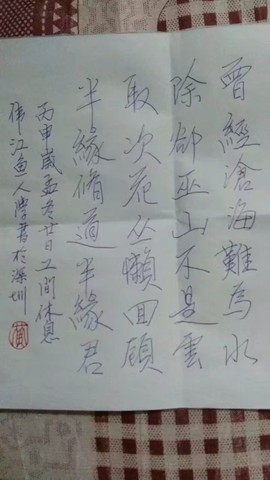 曾經滄海難為水
除卻巫山不是雲
取次花丛懶回顧
半緣脩道半緣君
丙申歲孟冬廿日工间休息
伟江鱼人學書於深圳